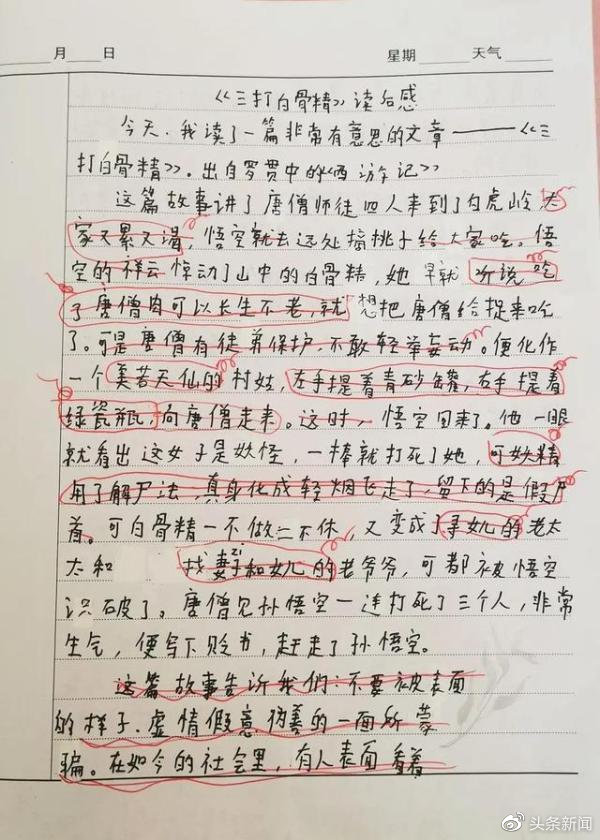 月 日 星期 天气
《三打白骨精》读后感
今天，我读了一篇非常有意思的文章——《三
打白骨精》。出自罗贯中的《西游记》
这篇故事讲了唐僧师徒四人来到了白虎岭，大
家又累又渴，悟空就去远处摘桃子给大家吃。悟
空的祥云惊动了山中的白骨精，她早就听说吃
了唐僧肉可以长生不老，就想把唐僧给捉来吃
了。可是唐僧有徒弟保护，不敢轻举妄动。便化作
一个美若天仙的村姑，左手提着青砂罐，右手提着
绿瓷瓶，向唐僧走来。这时，悟空回来了。他一眼
就看出这女子是妖怪，一棒就打死了她，可妖精
用了解尸法，真身化成轻烟飞走了，留下的是假尸
首。可白骨精一不做二不休，又变成了寻女儿的老太
太和 找妻子和女儿的老爷爷，可都被悟空
识破了。唐僧见孙悟空一连打死了三个人，非常
生气，便写下贬书，赶走了孙悟空。
这篇故事告诉我们：不要被表面
的样子、虚情假意伪善的一面所蒙
骗。在如今的社会里，有人表面看着
头条新闻